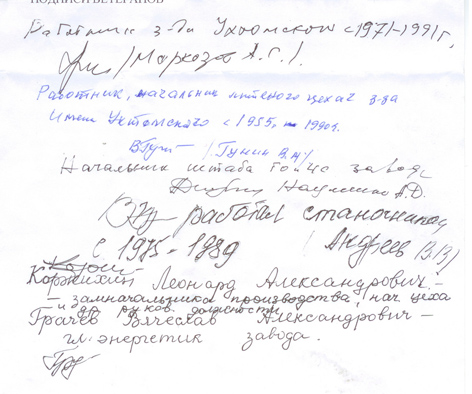 ПОДПИСИ ВЕТЕРАНОВ
Работник з-да Ухтомского с 1971-1991 г.
/Маркоза А.Г./.
Работник, начальник литейного цеха 2 з-да
имени Ухтомского с 1955, по 1990г.
/Гунин В.М/
Начальник штаба ГО и ЧС завода
Науменко А.Д.
работал станочником
с 1975-1989 /Андреев В.В/
Коржихин Леонард Александрович. -
- замначальника производства, нач. цеха
и др. руков. должности.
Грачёв Вячеслав Александрович -
гл. энергетик завода.